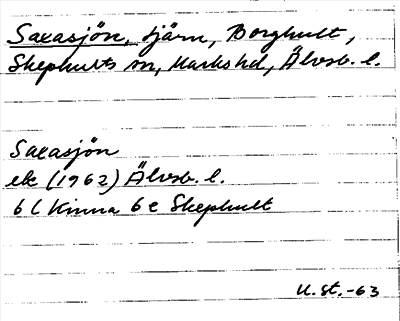 Saxasjön, tjärn, Borghult,
Skephults sn, Marks hd, Älvsb. l.
Saxasjön
ek (1962) Älvsb. l.
6 C Kinna 6 e Skephult
U.st.-63